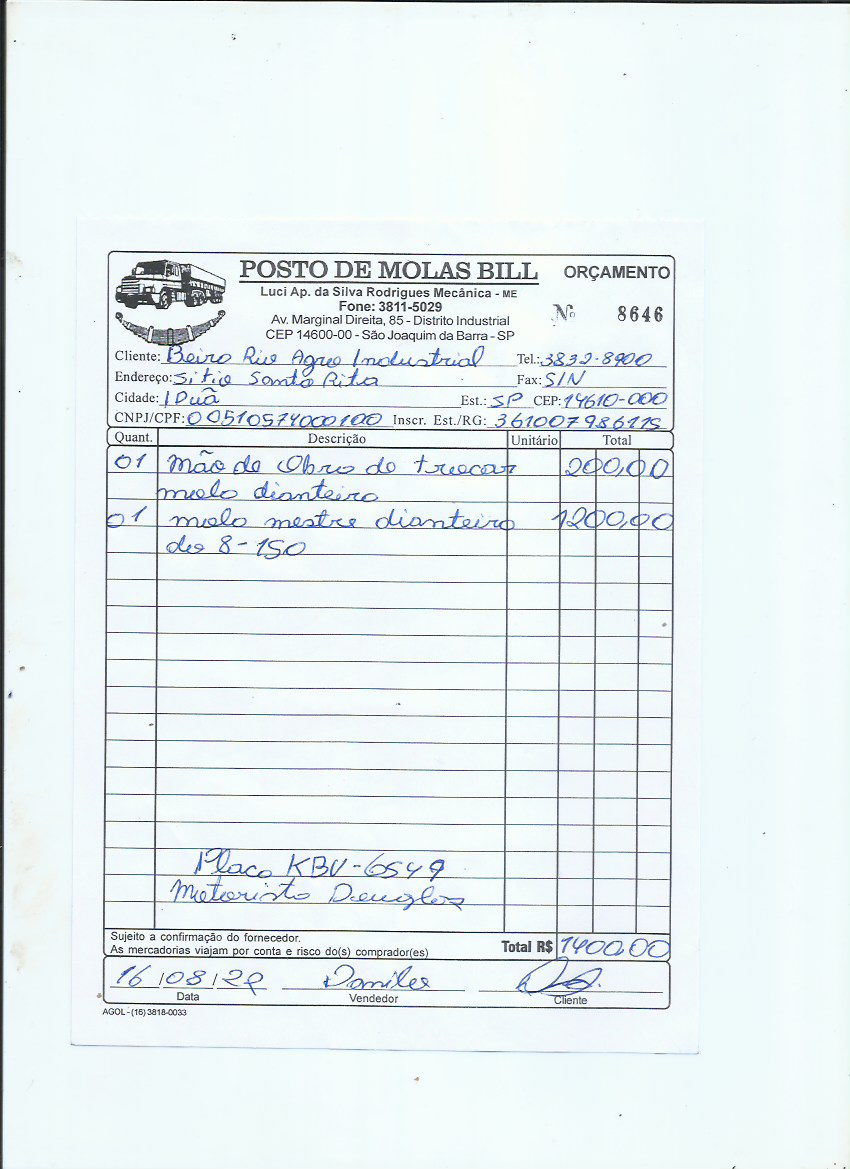 POSTO DE MOLAS BILL
ORÇAMENTO
Luci Ap. da Silva Rodrigues Mecânica - ME
Fone: 3811-5029
Av. Marginal Direita, 85 - Distrito Industrial
CEP 14600-00 - São Joaquim da Barra - SP
Nº 8646
Cliente: Beira Rio Agro Industrial Tel.: 3832-8900
Endereço: Sitio Santa Rita Fax: S/N
Cidade: IPuã Est.: SP CEP: 14610-000
CNPJ/CPF: 00510574000100 Inscr. Est./RG: 361007986115
Quant. Descrição Unitário Total
01 mão de Obra de troocar 200,00
mola dianteira
01 mola mestre dianteira 1200,00
do 8-150
Placa KBV-6549
Motorista Douglas
Sujeito a confirmação do fornecedor.
As mercadorias viajam por conta e risco do(s) comprador(es) Total R$ 1400,00
16/08/22 Danilo
Data Vendedor Cliente
AGOL - (16) 3818-0033